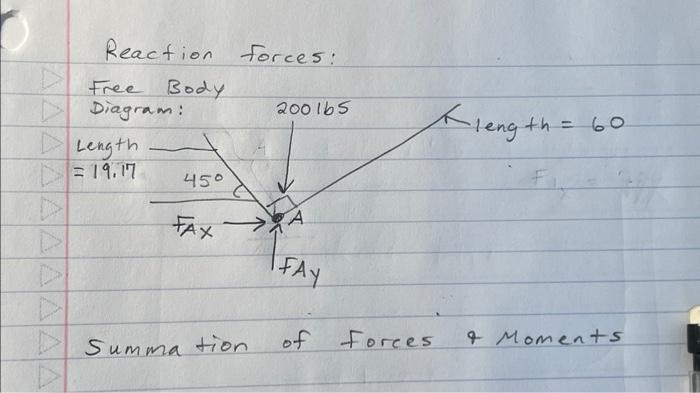 Reaction forces:
Free Body
Diagram:
200 lbs
length = 60
Length
= 19.17
45°
A
FAX
FAY
Summation of Forces & Moments